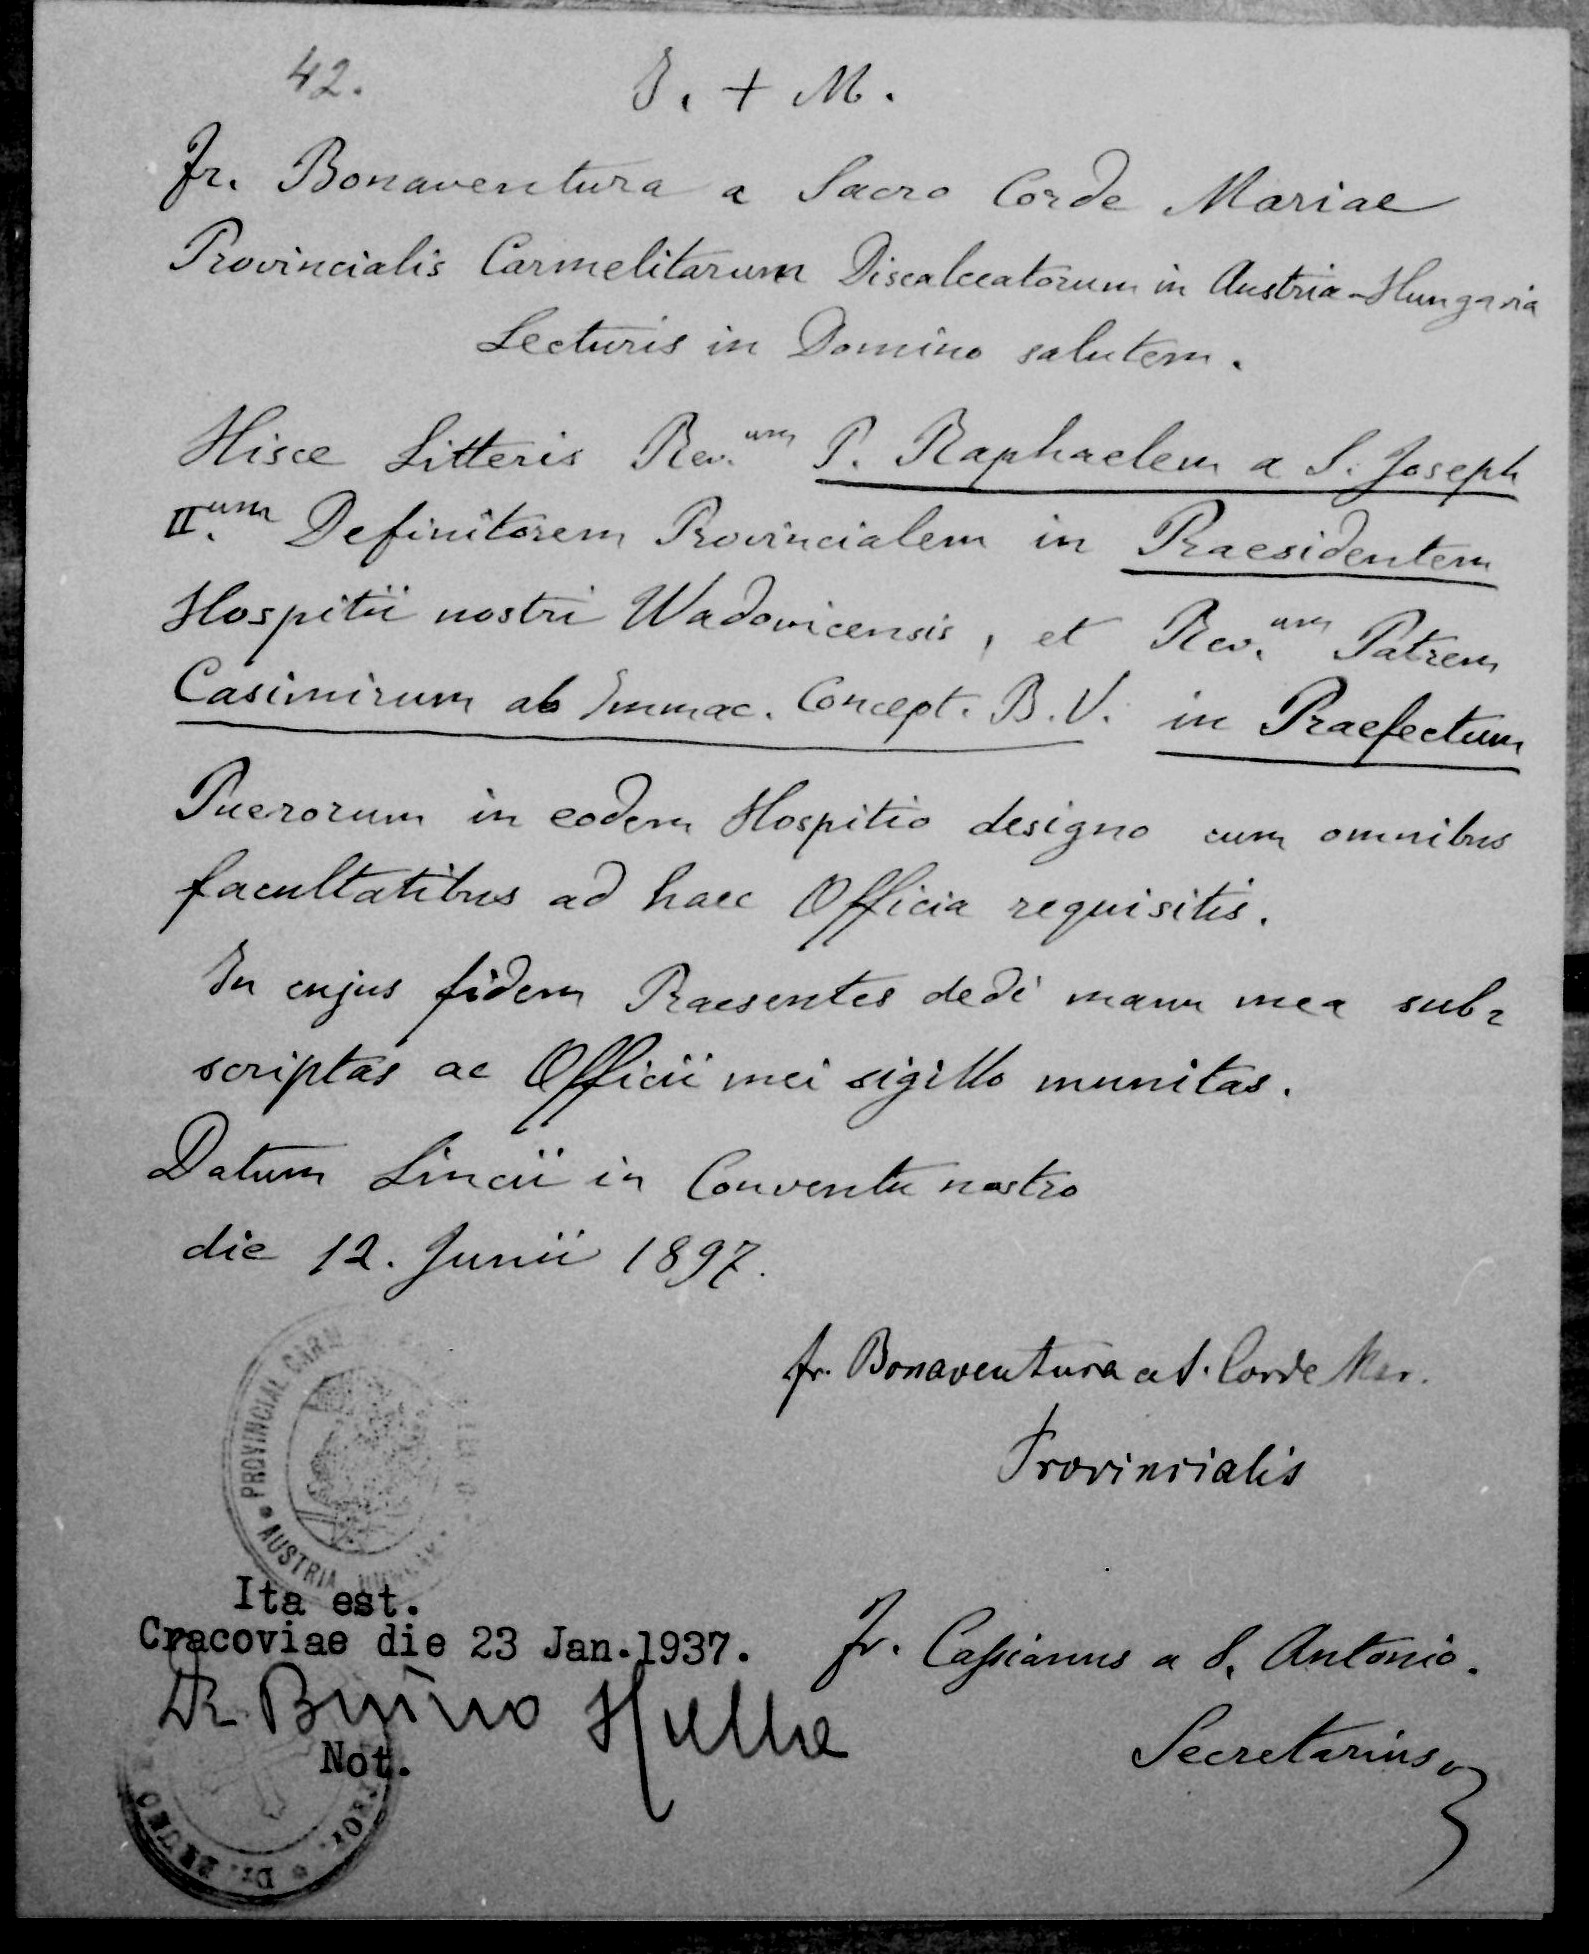 42.
J. + M.
Fr. Bonaventura a Sacro Corde Mariae
Provincialis Carmelitarum Discalceatorum in Austria-Hungaria
Lecturis in Domino salutem.
Hisce Litteris Rev.um P. Raphaelem a S. Joseph
II.um Definitorem Provincialem in Praesidentem
Hospitii nostri Wadovicensis, et Rev.um Patrem
Casimirum ab Immac. Concept. B.V. in Praefectum
Puerorum in eodem Hospitio designo cum omnibus
facultatibus ad haec Officia requisitis.
In cujus fidem Praesentes dedi manu mea sub=
scriptas ac Officii mei sigillo munitas.
Datum Lincii in Conventu nostro
die 12. Junii 1897.
fr. Bonaventura a S. Corde Mar.
Provincialis
PROVINCIAL CARM
AUSTRIA
Ita est.
Cracoviae die 23 Jan.1937.
Fr. Cassianus a S. Antonio.
Dr Bruno
Secretarius
Not.
Dr. BRUNO